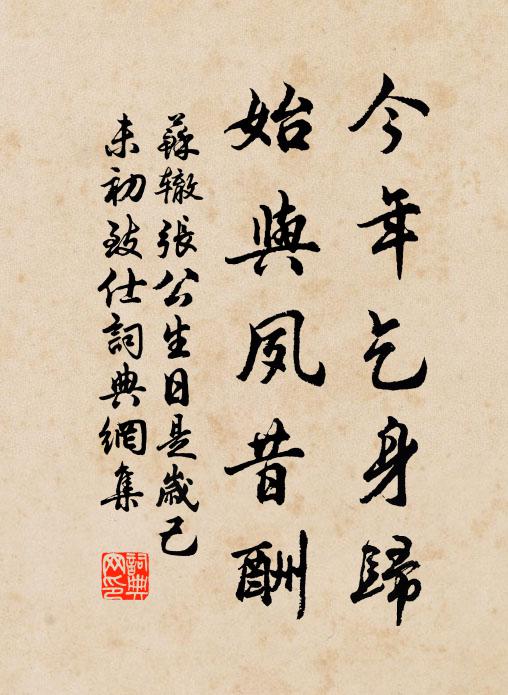 今年乞身歸
始與夙昔酬
蘇辙張公生日是歲己
未初致仕詞典網集
詞典
网印